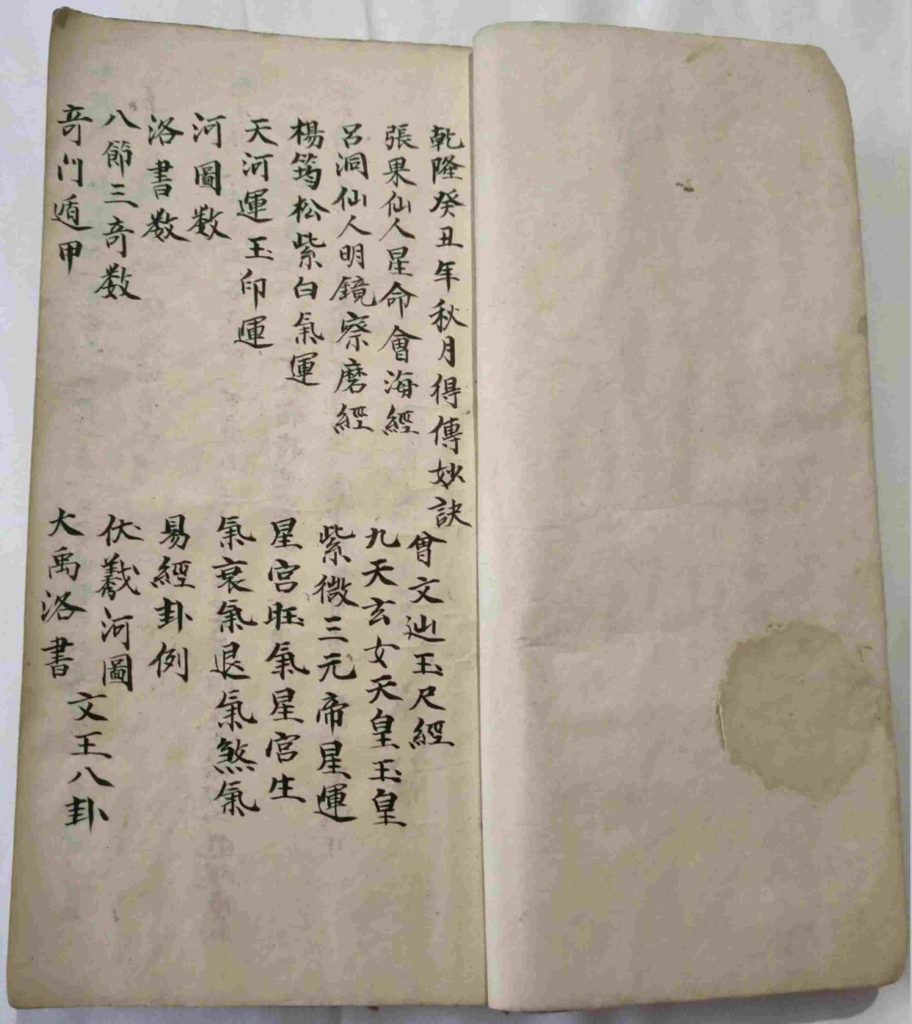 乾隆癸丑年秋月得傳妙訣
張果仙人星命會海經
呂洞仙人明鏡察磨經
楊筠松紫白氣運
天河運玉印運
河圖数
洛書数
八節三奇数
奇门遁甲
曾文辿玉尺經
九天玄女天皇玉皇
紫微三元帝星運
星宫旺氣星宫生
氣衰氣退氣煞氣
易經卦例
伏羲河圖
大禹洛書
文王八卦